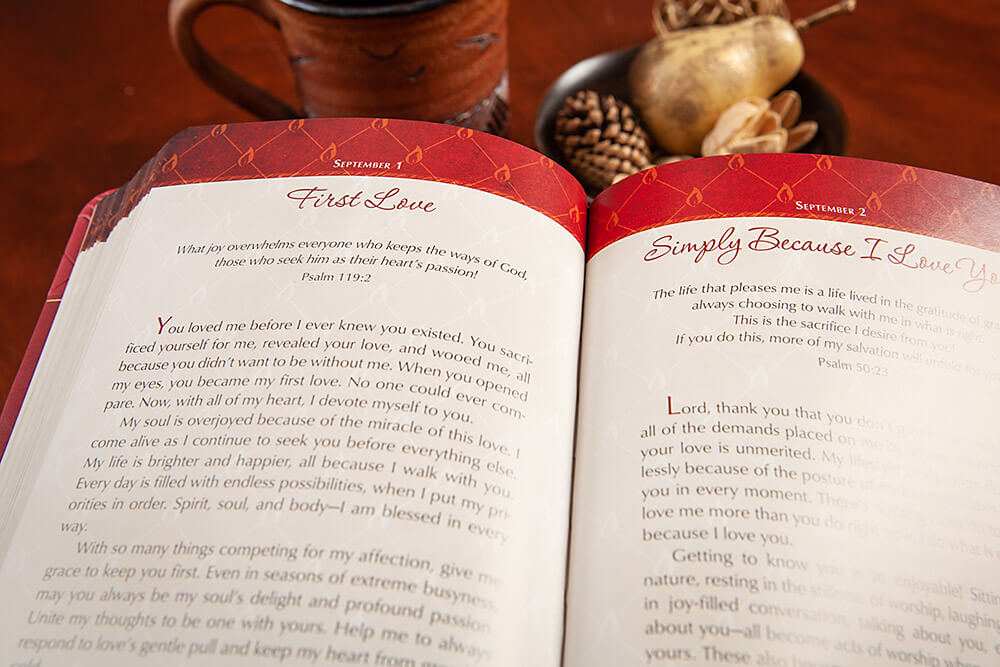 September 1
First Love
What joy overwhelms everyone who keeps the ways of God,
those who seek him as their heart's passion!
Psalm 119:2
You loved me before I ever knew you existed. You sacri-
ficed yourself for me, revealed your love, and wooed me, all
because you didn't want to be without me. When you opened
my eyes, you became my first love. No one could ever com-
pare. Now, with all of my heart, I devote myself to you.
My soul is overjoyed because of the miracle of this love. I
come alive as I continue to seek you before everything else.
My life is brighter and happier, all because I walk with you.
Every day is filled with endless possibilities, when I put my pri-
orities in order. Spirit, soul, and body—I am blessed in every
way.
With so many things competing for my affection, give me
grace to keep you first. Even in seasons of extreme busyness,
may you always be my soul's delight and profound passion.
Unite my thoughts to be one with yours. Help me to always
respond to love's gentle pull and keep my heart from
September 2
Simply Because I Love Yo
The life that pleases me is a life lived in the gratitude of
always choosing to walk with me in what is right.
This is the sacrifice I desire from you!
If you do this, more of my salvation will unfold for
Psalm 50:23
Lord, thank you that you don't
all of the demands placed on me
your love is unmerited. My
lessly because of the posture of
you in every moment. There's
love me more than you do right
because I love you.
Getting to know you is so enjoyable! Sittin
nature, resting in the stillness of worship, laughing
in joy-filled conversation, talking about you,
about you—all become acts of worship
yours. These also